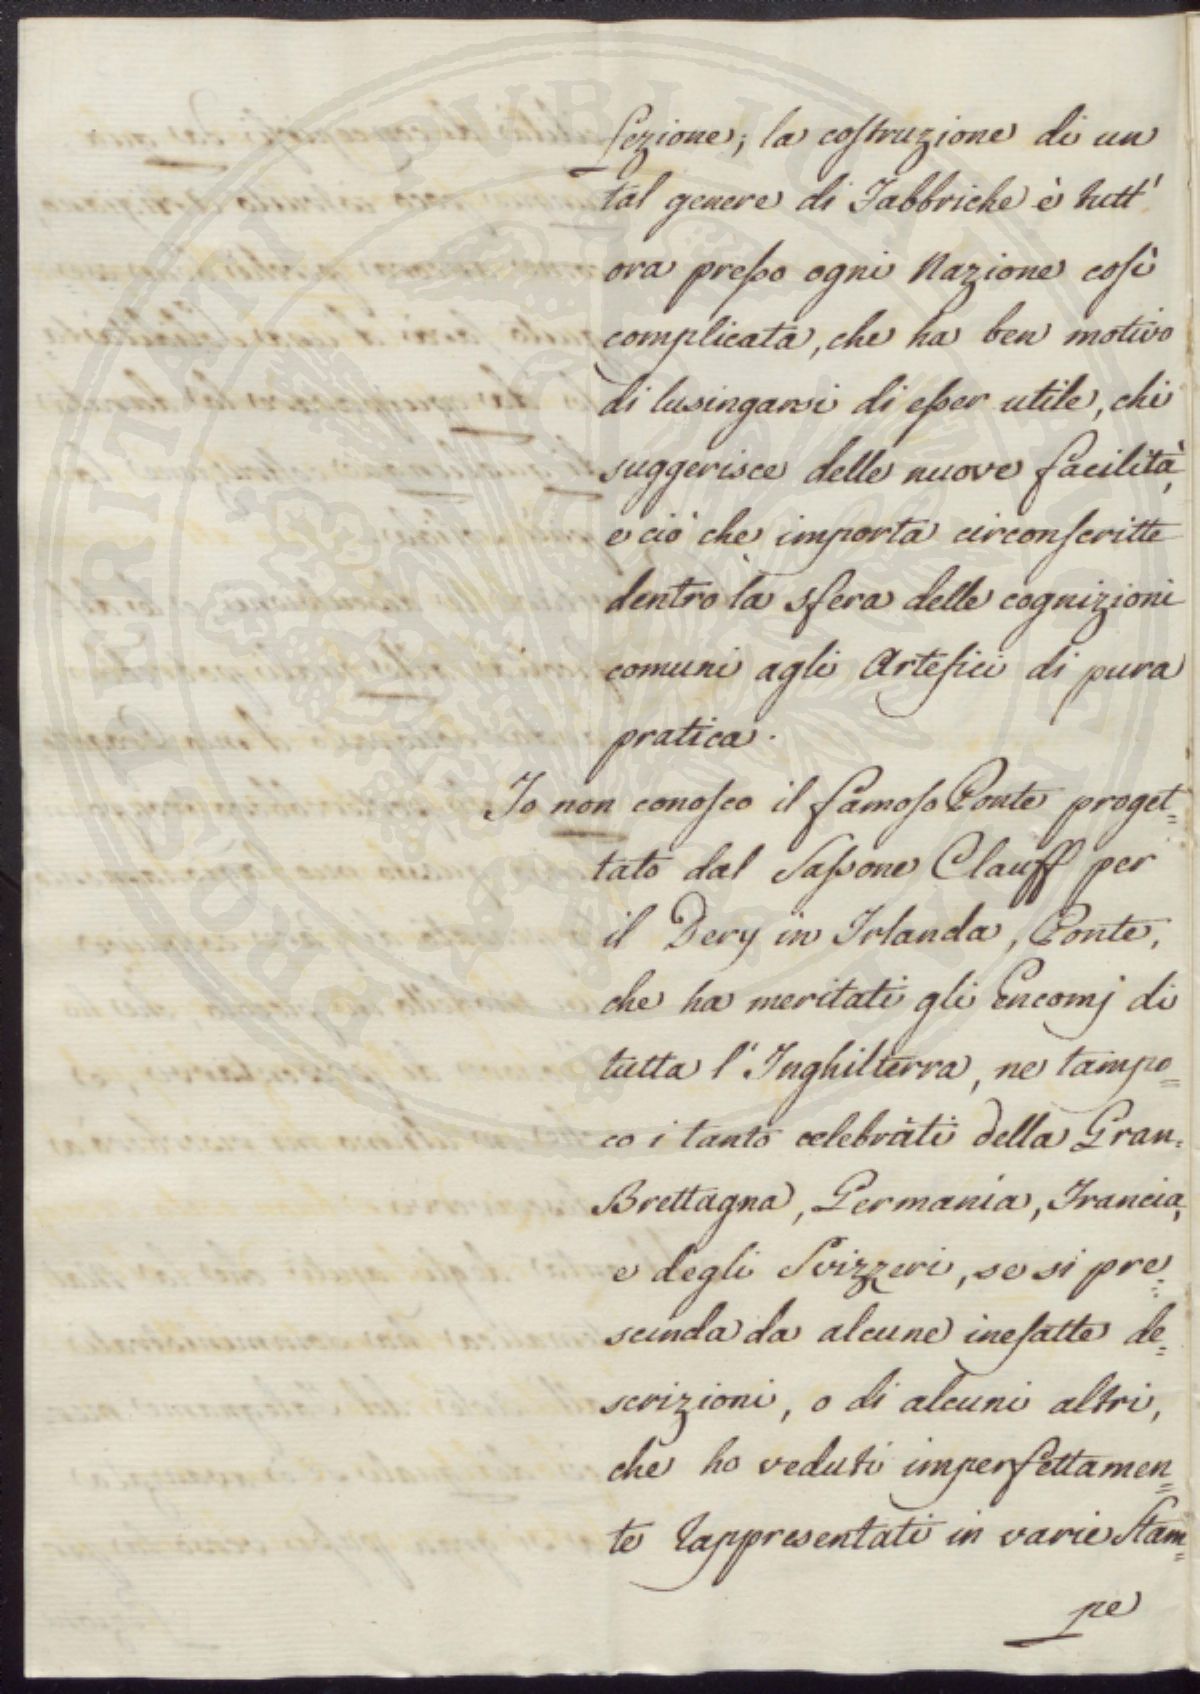 fezione; la costruzione di un
tal genere di Fabbriche è tutt'
ora presso ogni Nazione così
complicata, che ha ben motivo
di lusingarsi di esser utile, chi
suggerisce delle nuove facilità,
e ciò che importa circonscritte
dentro la sfera delle cognizioni
comuni agli Artefici di pura
pratica.
Io non conosco il famoso Ponte proget=
tato dal Sassone Clauff per
il Dery in Irlanda, Ponte,
che ha meritati gli Encomj di
tutta l'Inghilterra, ne tampo=
co i tanto celebrati della Gran=
Brettagna, Germania, Francia,
e degli Svizzeri, se si pre=
scinda da alcune inesatte de=
scrizioni, o di alcuni altri,
che ho veduti imperfettamen=
te rappresentati in varie Stam=
pe
PROSPERITATI PUBLICAE